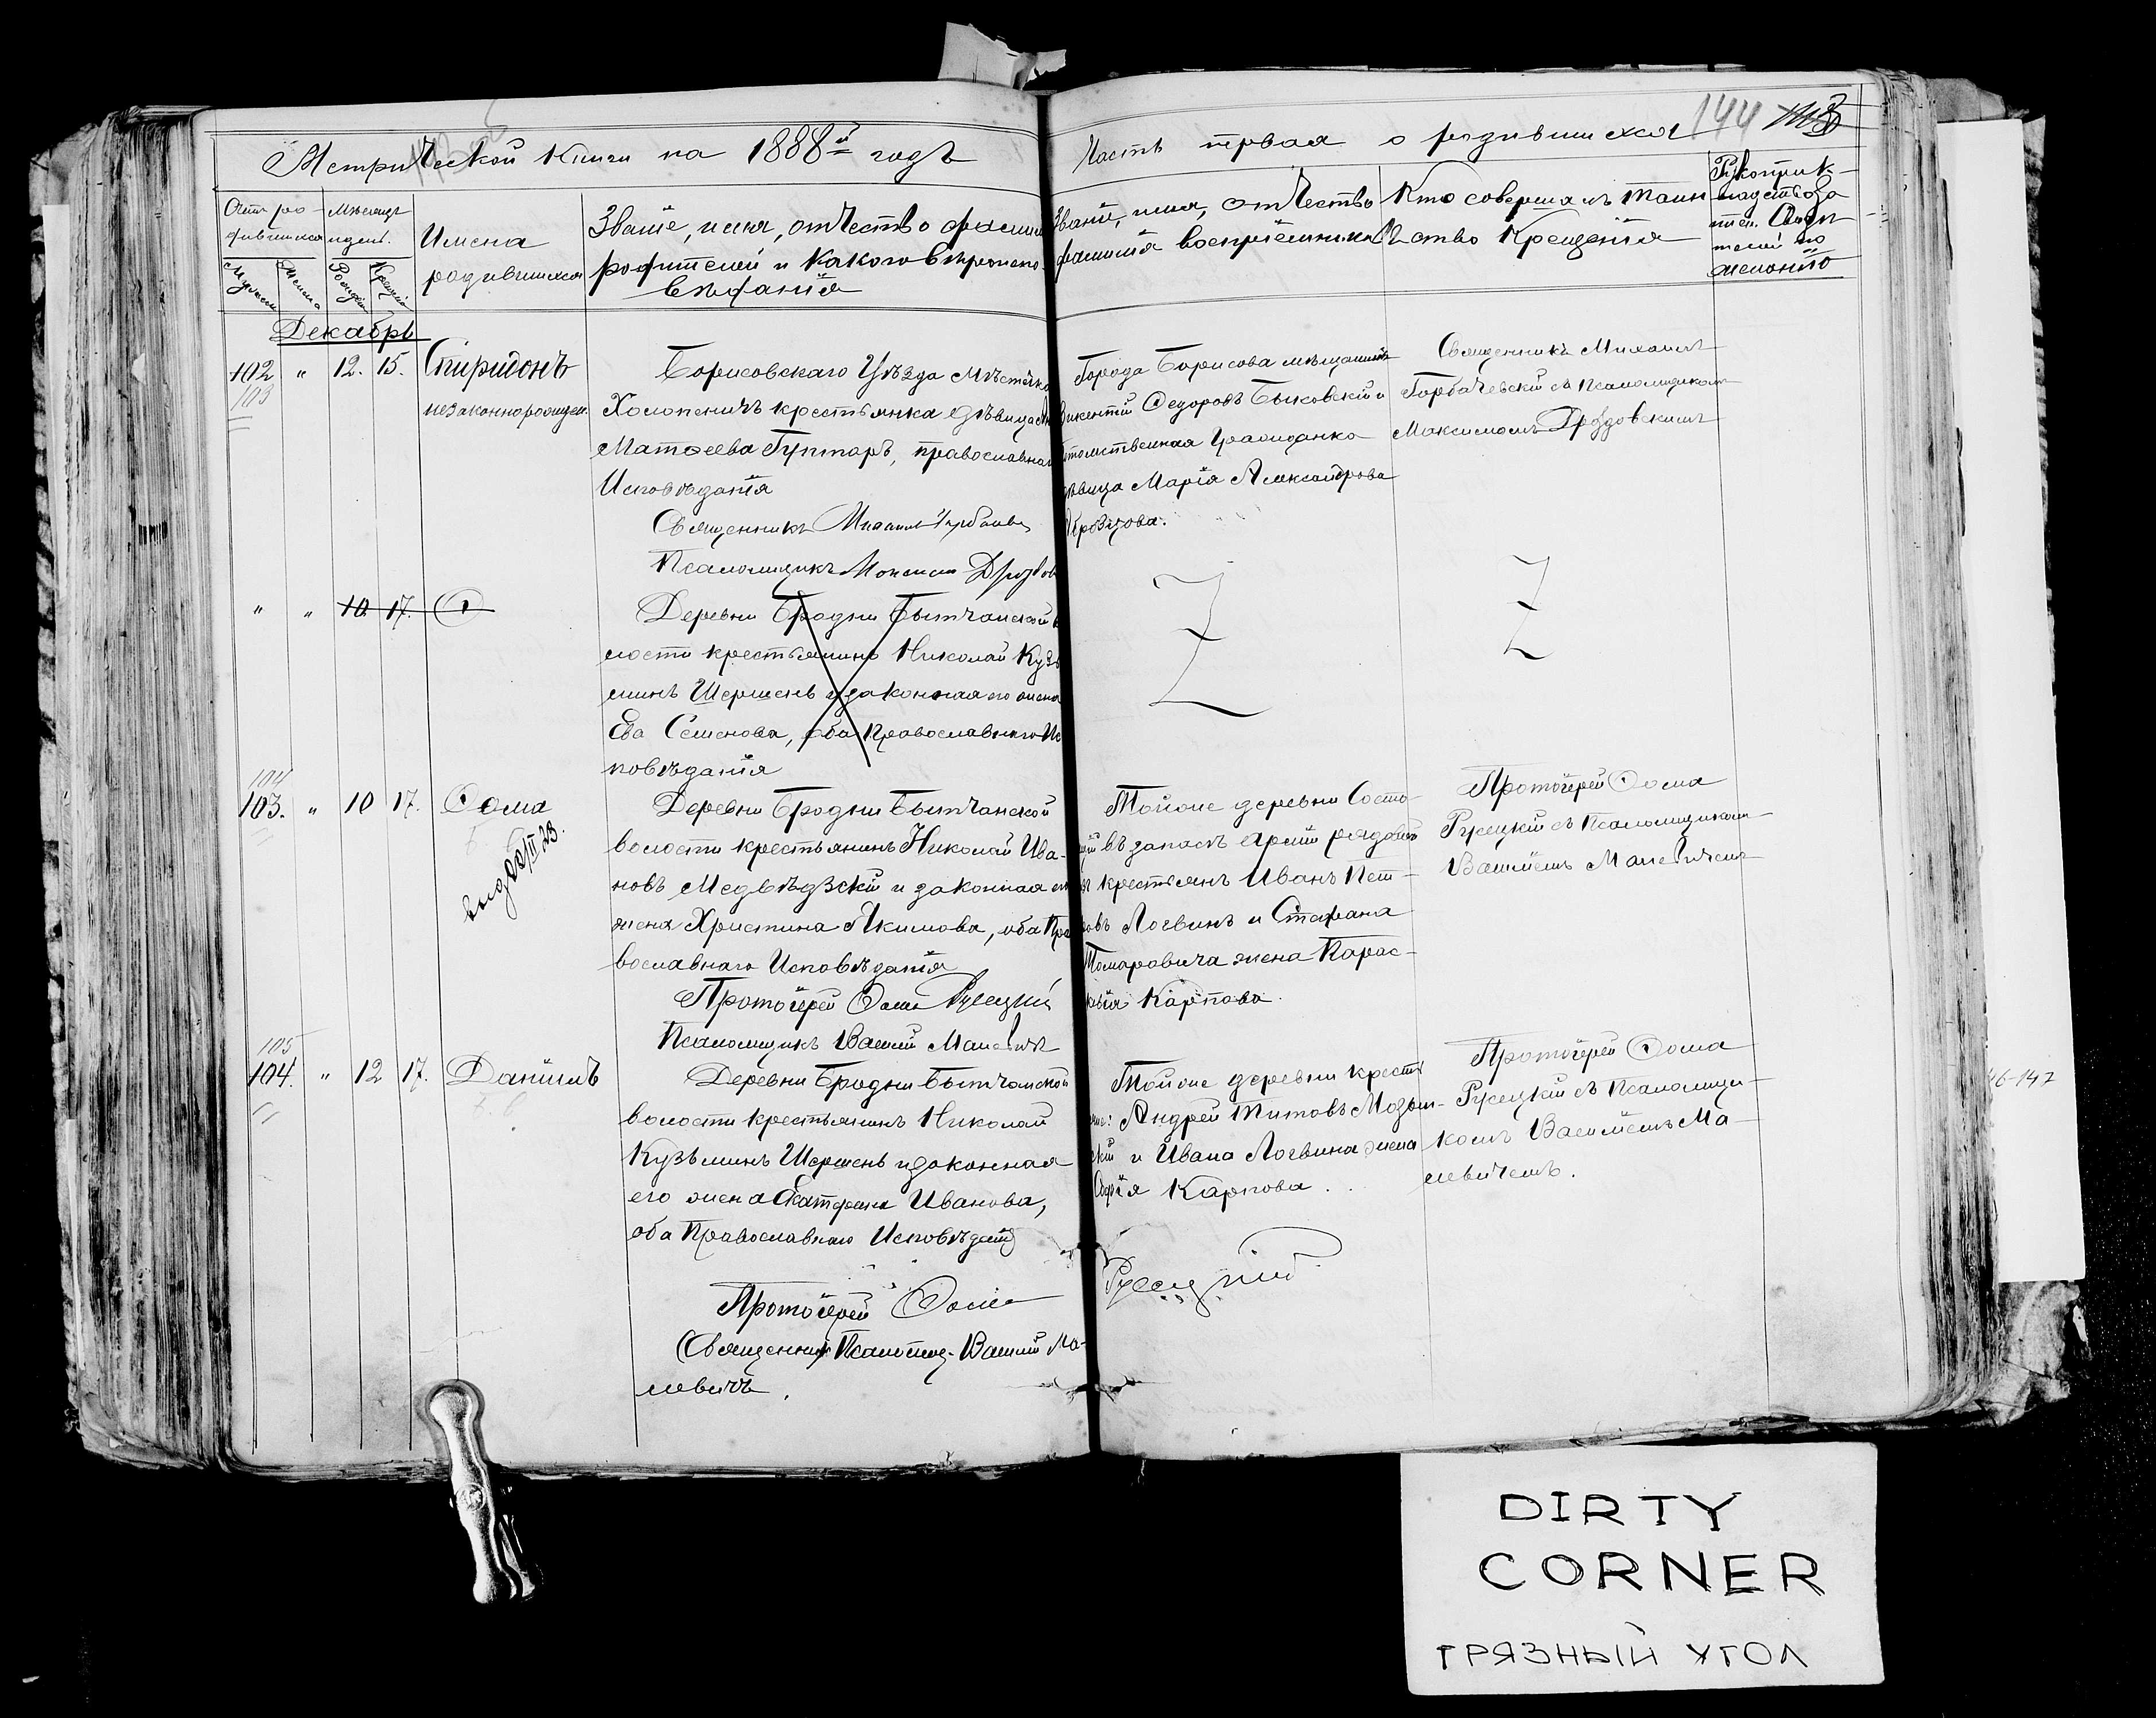 Метрической Книги на 1888й годъ
Часть первая о родившихся
144
Счетъ ро-
дившихся
Мѣсяцъ
и день.
Имена
родившихся
Званіе, имя, отчество фамилія
родителей и какого вѣроиспо-
вѣданія
Званіе, имя, отчество
фамилія воспріемниковъ
Кто совершалъ таин
ство Крещенія
Рукоприк-
ладство
желанію
Декабрь
102 " 12. 15. Спиридонъ
103
незаконнорожден.
Борисовскаго Уѣзда Мѣстечка
Холопеничъ крестьянка дѣвица
Матѳеева Гунтаръ, православнаго
Исповѣданія
Священникъ Михаилъ
Псаломщикъ Максимъ Дроздов
Города Борисова мѣщанинъ
Викентій Ѳедоровъ Быковскій и
потомственная Гражданка
дѣвица Марія Александрова
Священникъ Михаилъ
Горбачевскій съ Псаломщикомъ
Максимомъ Дроздовскимъ
" " 10 17.
Деревни Бродни Бытчанской во
лости крестьянинъ Николай Кузь
минъ Шершень и законная его жена
Ева Семенова, оба Православнаго Ис
повѣданія
104
103. " 10 17. Ѳома
Деревни Бродни Бытчанской
волости крестьянинъ Николай Ива-
новъ Медвѣдзскій и законная его
жена Христина Якимова, оба Пра
вославнаго Исповѣданія
Протоіерей Ѳома Русецкій
Псаломщикъ Василій Малевичъ
Тойже деревни Состо-
щій въ запасѣ арміи рядовой
изъ крестьянъ Иванъ Пет-
ровъ Логвинъ и Стефана
Томаровича жена Парас-
кевія Карпова.
Протоіерей Ѳома
Русецкій съ Псаломщикомъ
Василіемъ Малевичемъ
105
104. " 12 17. Даніилъ
Деревни Бродни Бытчанской
волости крестьянинъ Николай
Кузьминъ Шершень и законная
его жена Екатерина Иванова,
оба Православнаго Исповѣданія
Протоіерей Ѳома
Русецкій
Священник Псаломщ. Василій Ма-
левичъ.
Тойже деревни кресть
яне: Андрей Титовъ Мозы-
скій и Ивана Логвина жена
Софія Карпова.
Протоіерей Ѳома
Русецкій съ Псаломщи-
комъ Василіемъ Ма-
левичемъ.
46-147
DIRTY
CORNER
ГРЯЗНЫЙ УГОЛ